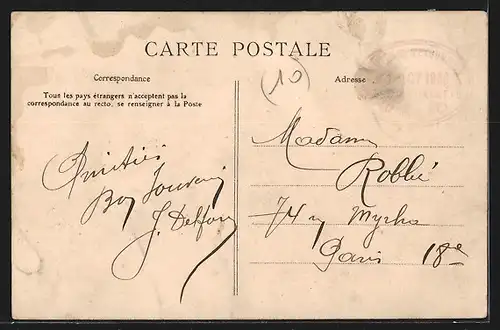 CARTE POSTALE
Correspondance
Tous les pays étrangers n'acceptent pas la
correspondance au recto, se renseigner à la Poste
Amitiés
Bon Souvenir
J. Delfou
10
Adresse
Madame
Roblié
74 r Myrha
Paris 18e